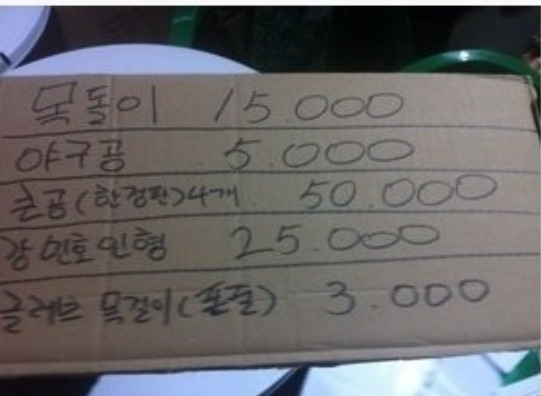 목돌이 15.000
야구공 5.000
큰공(한정판)4개. 50.000
강민호인형 25.000
글러브 목걸이(폰줄) 3.000